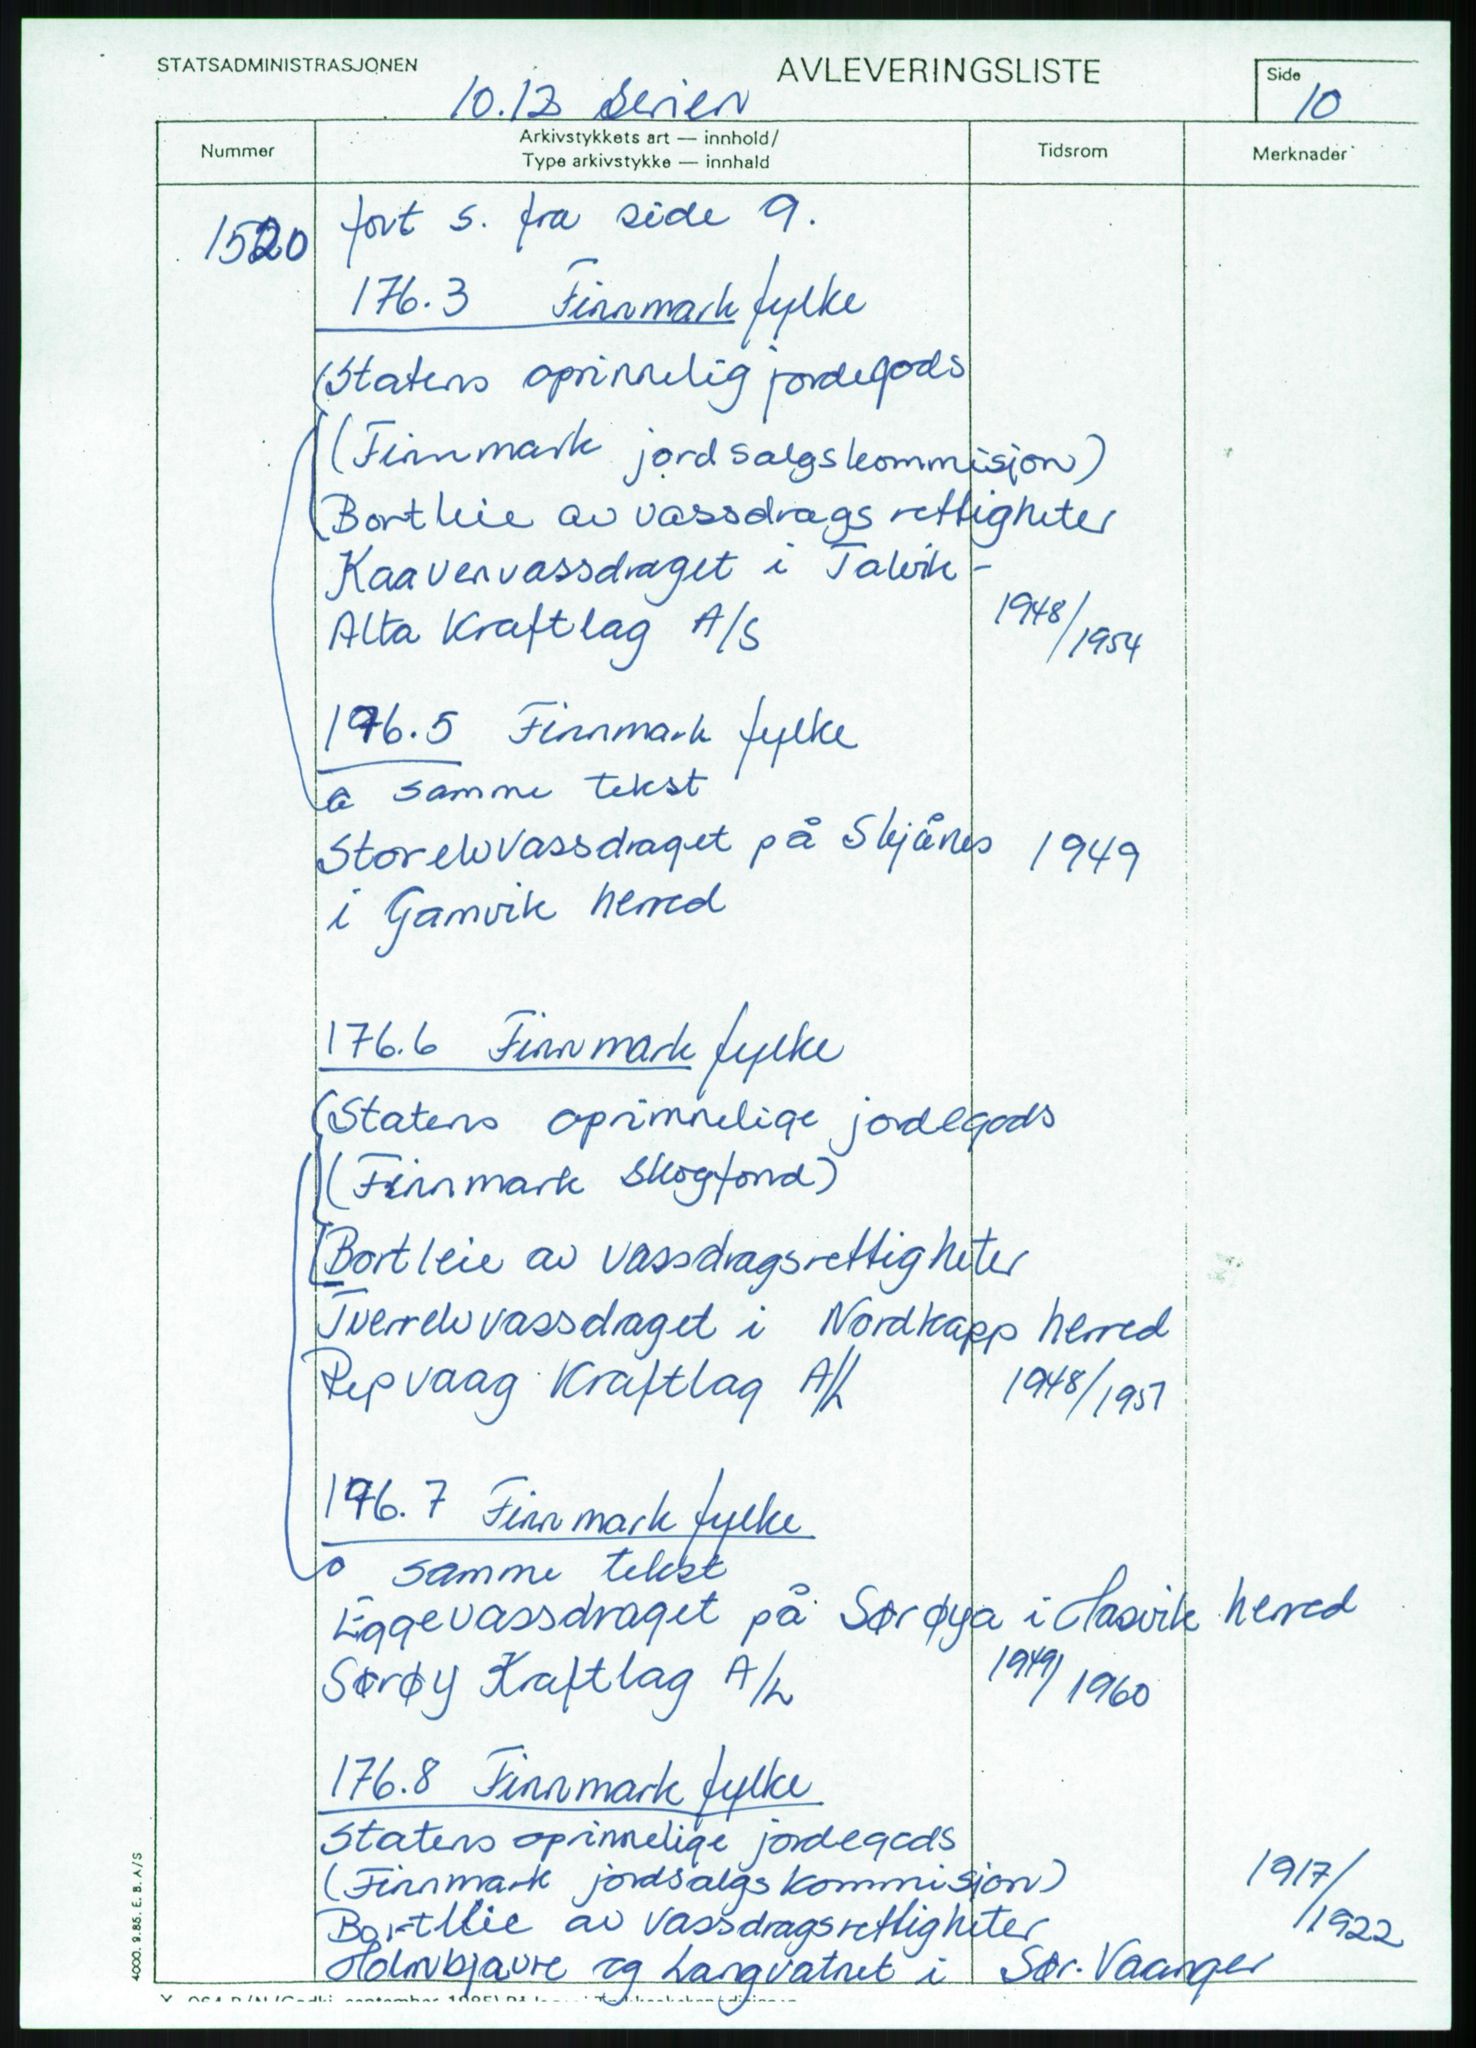 STATSADMINISTRASJONEN
AVLEVERINGSLISTE
Side
10
10.13 Serien
Nummer
Arkivstykkets art — innhold/
Type arkivstykke — innhald
Tidsrom
Merknader
1520
fort s. fra side 9.
176.3 Finnmark fylke
(Statens oprinnelig jordegods
(Finnmark jordsalgskommisjon)
Bortleie av vassdragsrettigheter
Kaavenvassdraget i Talvik -
Alta Kraftlag A/S 1948/1954
176.5 Finnmark fylke
samme tekst
Storelvvassdraget på Skjånes 1949
i Gamvik herred
176.6 Finnmark fylke
(Statens oprinnelige jordegods
(Finnmark Skogfond)
Bortleie av vassdragsrettigheter
Tverrelvvassdraget i Nordkapp herred
Repvaag Kraftlag A/L 1948/1957
176.7 Finnmark fylke
samme tekst
Eggevassdraget på Sørøya i Hasvik herred
Sørøy Kraftlag A/L 1949/1960
176.8 Finnmark fylke
Statens oprinnelige jordegods
(Finnmark jordsalgskommisjon) 1917/1922
Bortleie av vassdragsrettigheter
Holmbjavre og Langvatnet i Sør-Vaanger
4000. 9.85. E. B. A/S